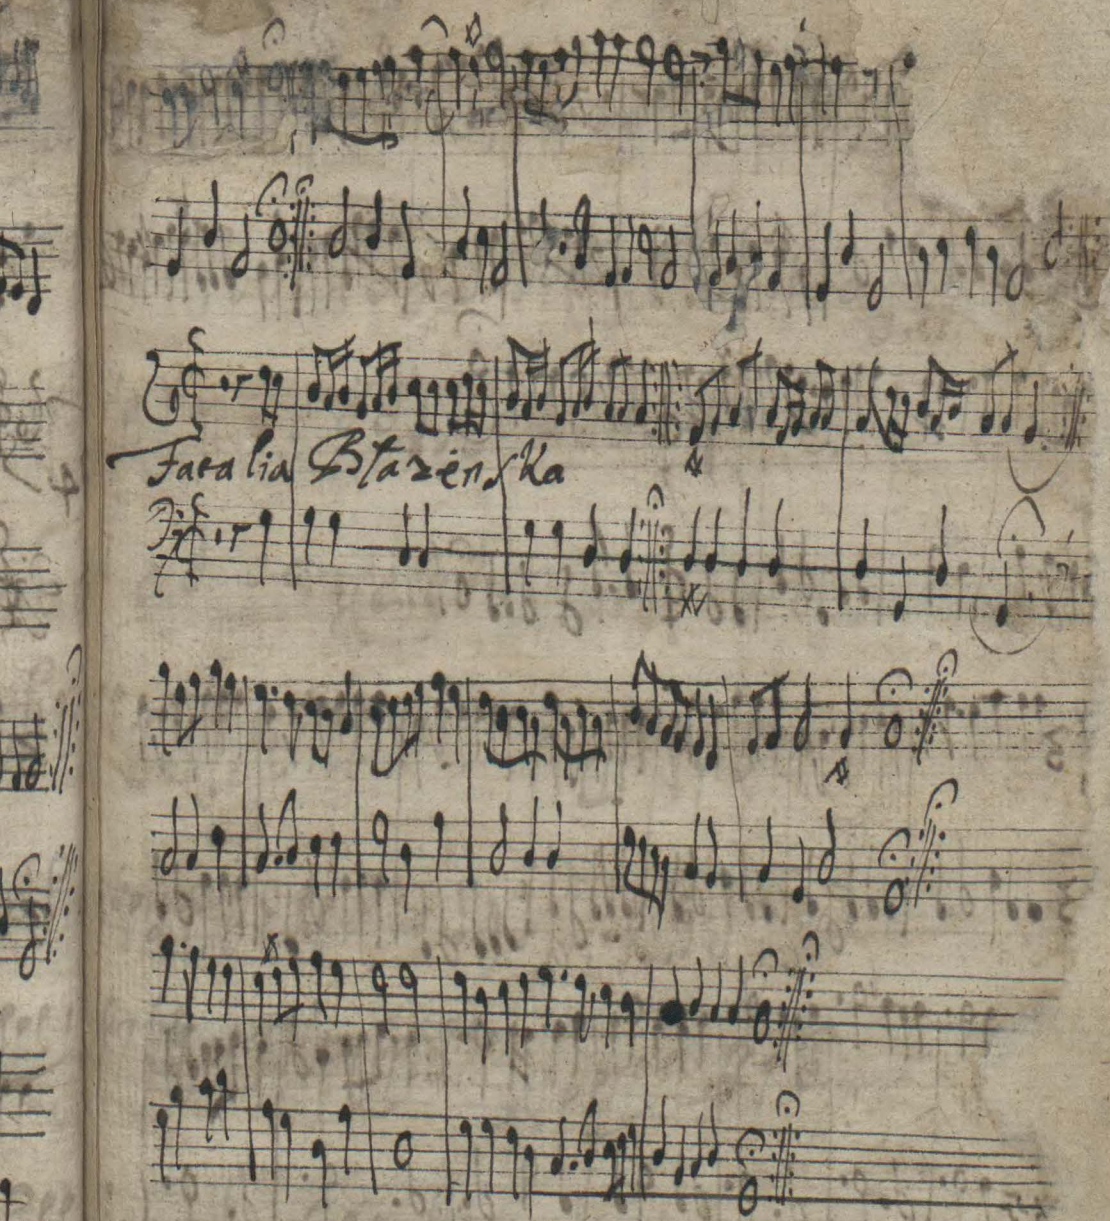 Fatalia Btazénska